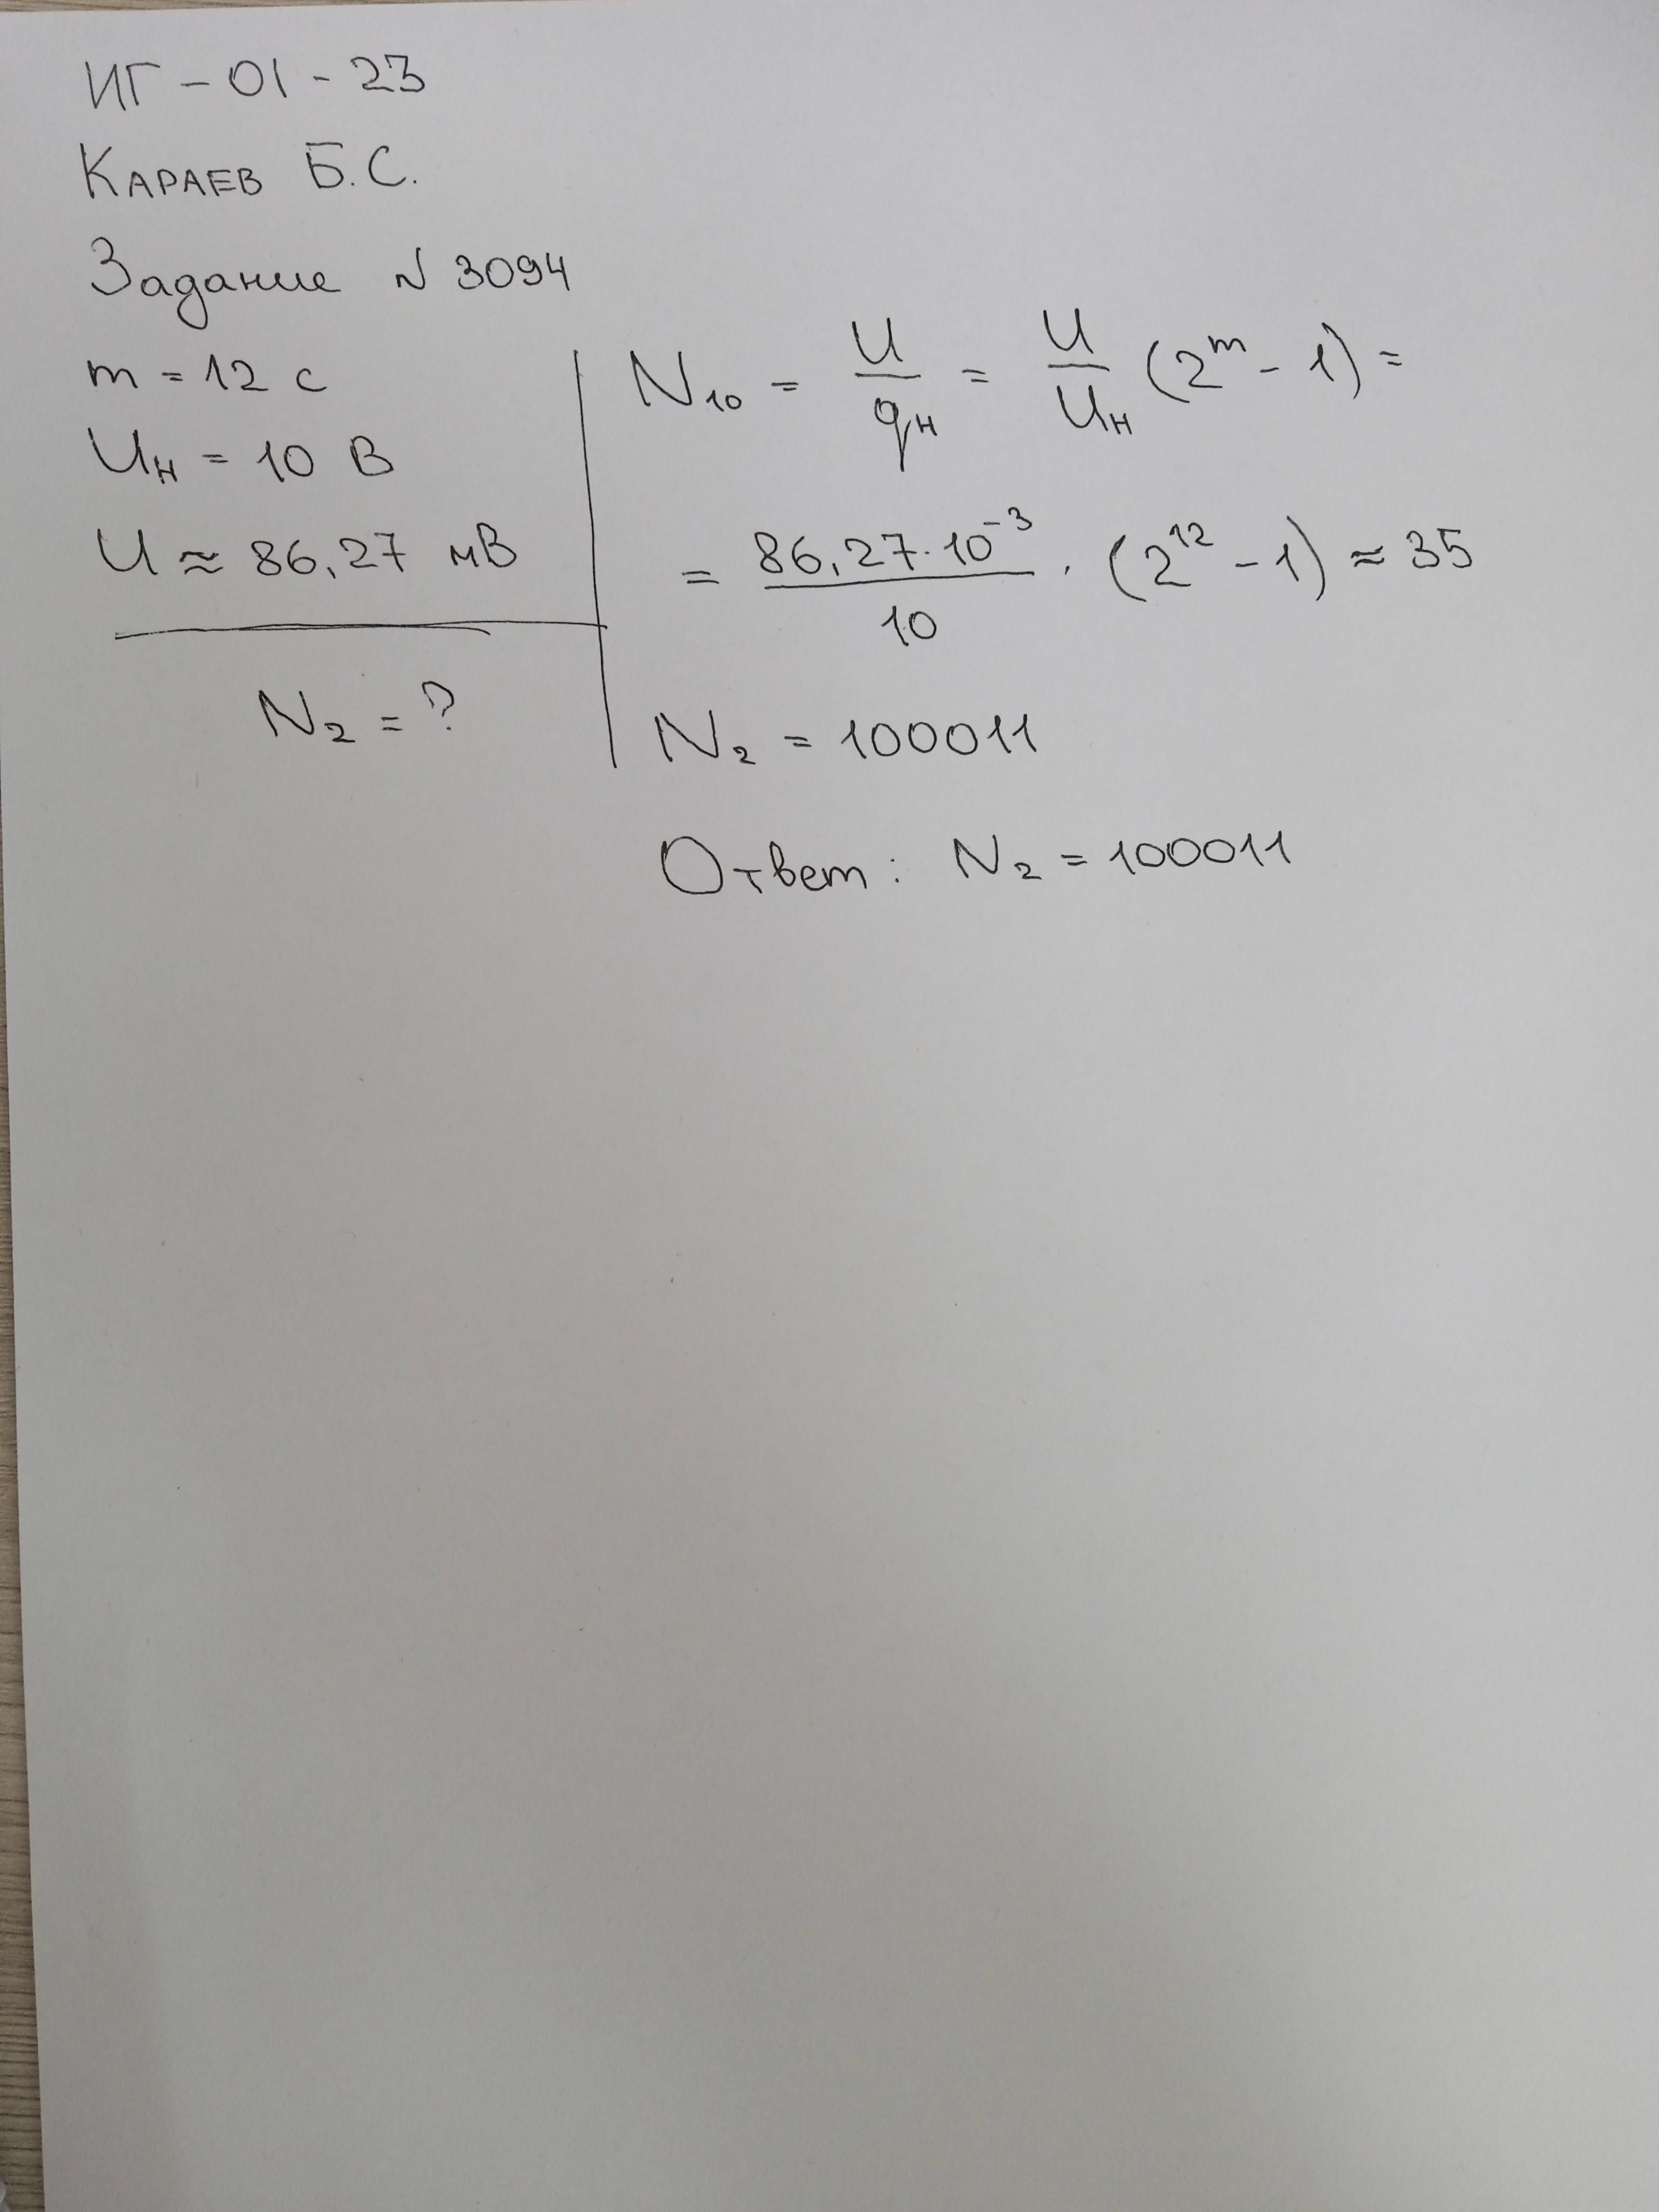 ИГ - 01 - 23
КАРАЕВ Б.С.
Задание N 3094
m = 12 с
Uн = 10 В
U ≈ 86,27 мВ
N₂ = ?
N₁₀ = U/qн = U/Uн (2^m - 1) =
= 86,27·10⁻³/10 · (2¹² - 1) ≈ 35
N₂ = 100011
Ответ: N₂ = 100011